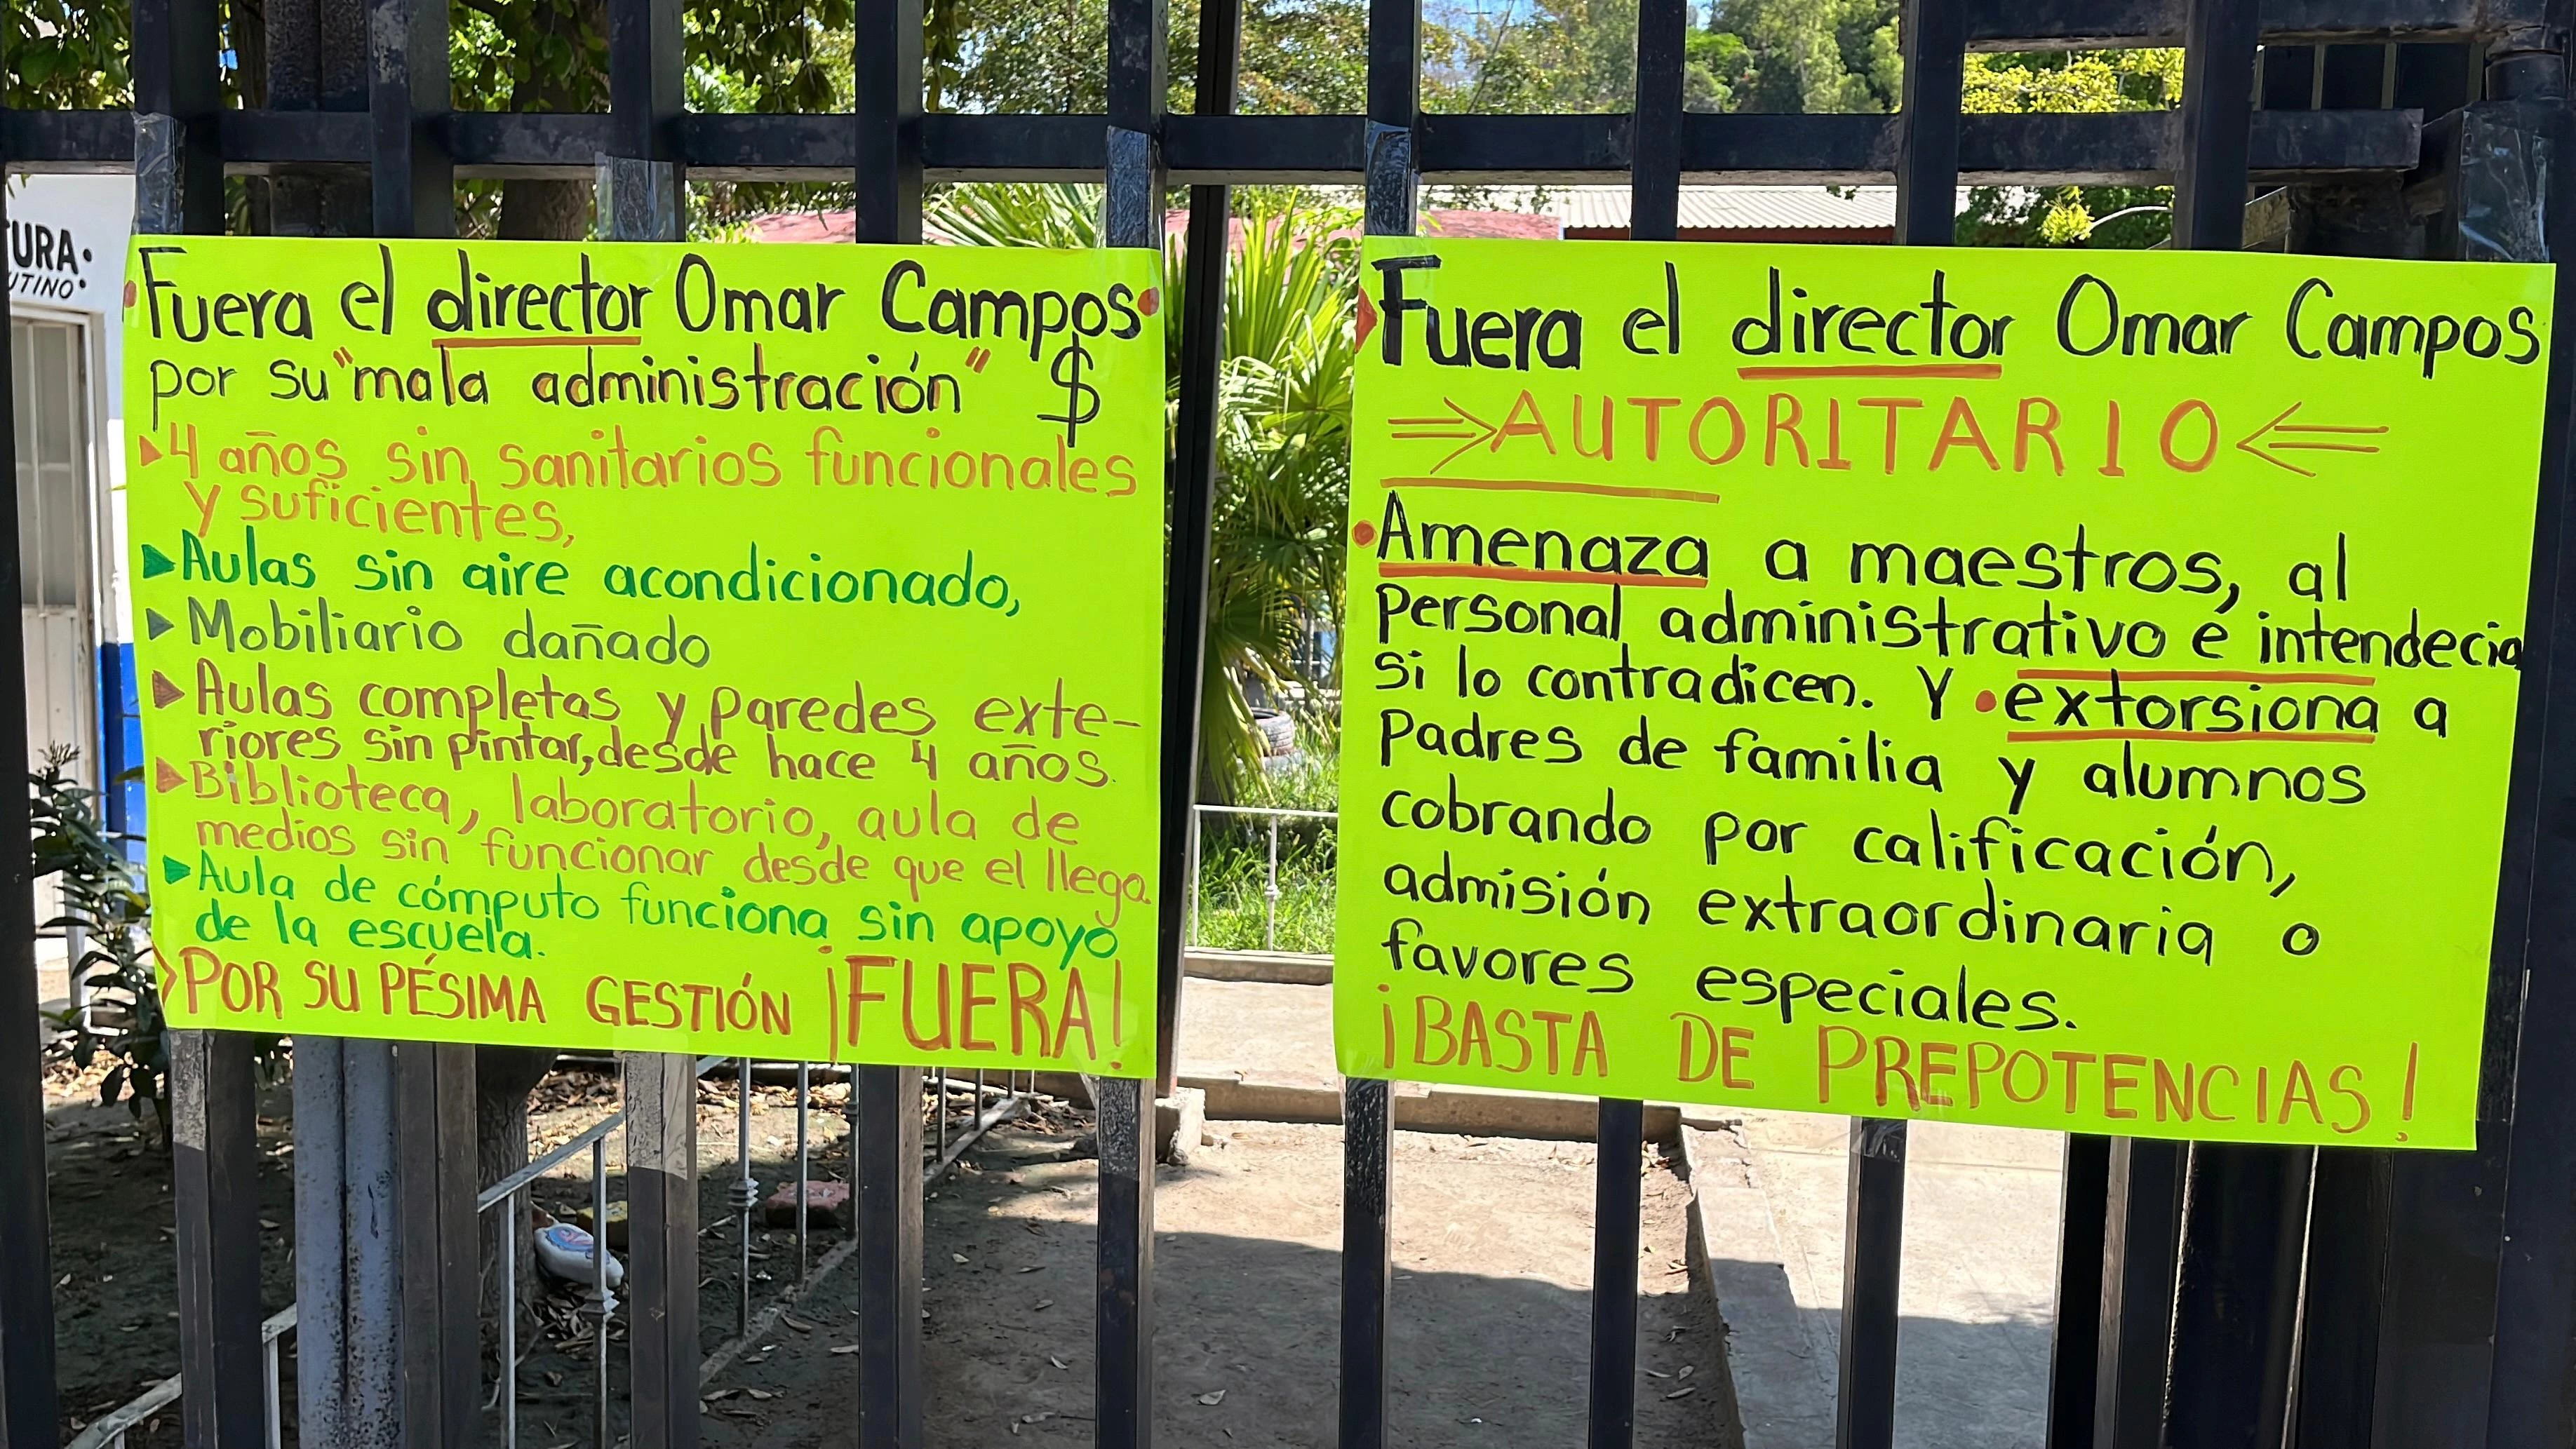 TURA.
UTINO.
Fuera el director Omar Campos
por su "mala administración" $
4 años sin sanitarios funcionales
y suficientes,
Aulas sin aire acondicionado,
Mobiliario dañado
Aulas completas y paredes exte-
riores sin pintar, desde hace 4 años.
Biblioteca, laboratorio, aula de
medios sin funcionar desde que el llega.
Aula de cómputo funciona sin apoyo
de la escuela.
POR SU PÉSIMA GESTIÓN ¡FUERA!
Fuera el director Omar Campos
⇒AUTORITARIO⇐
Amenaza a maestros, al
personal administrativo e intendecia
si lo contradicen. Y •extorsiona a
Padres de familia y alumnos
cobrando por calificación,
admisión extraordinaria o
favores especiales.
¡BASTA DE PREPOTENCIAS!